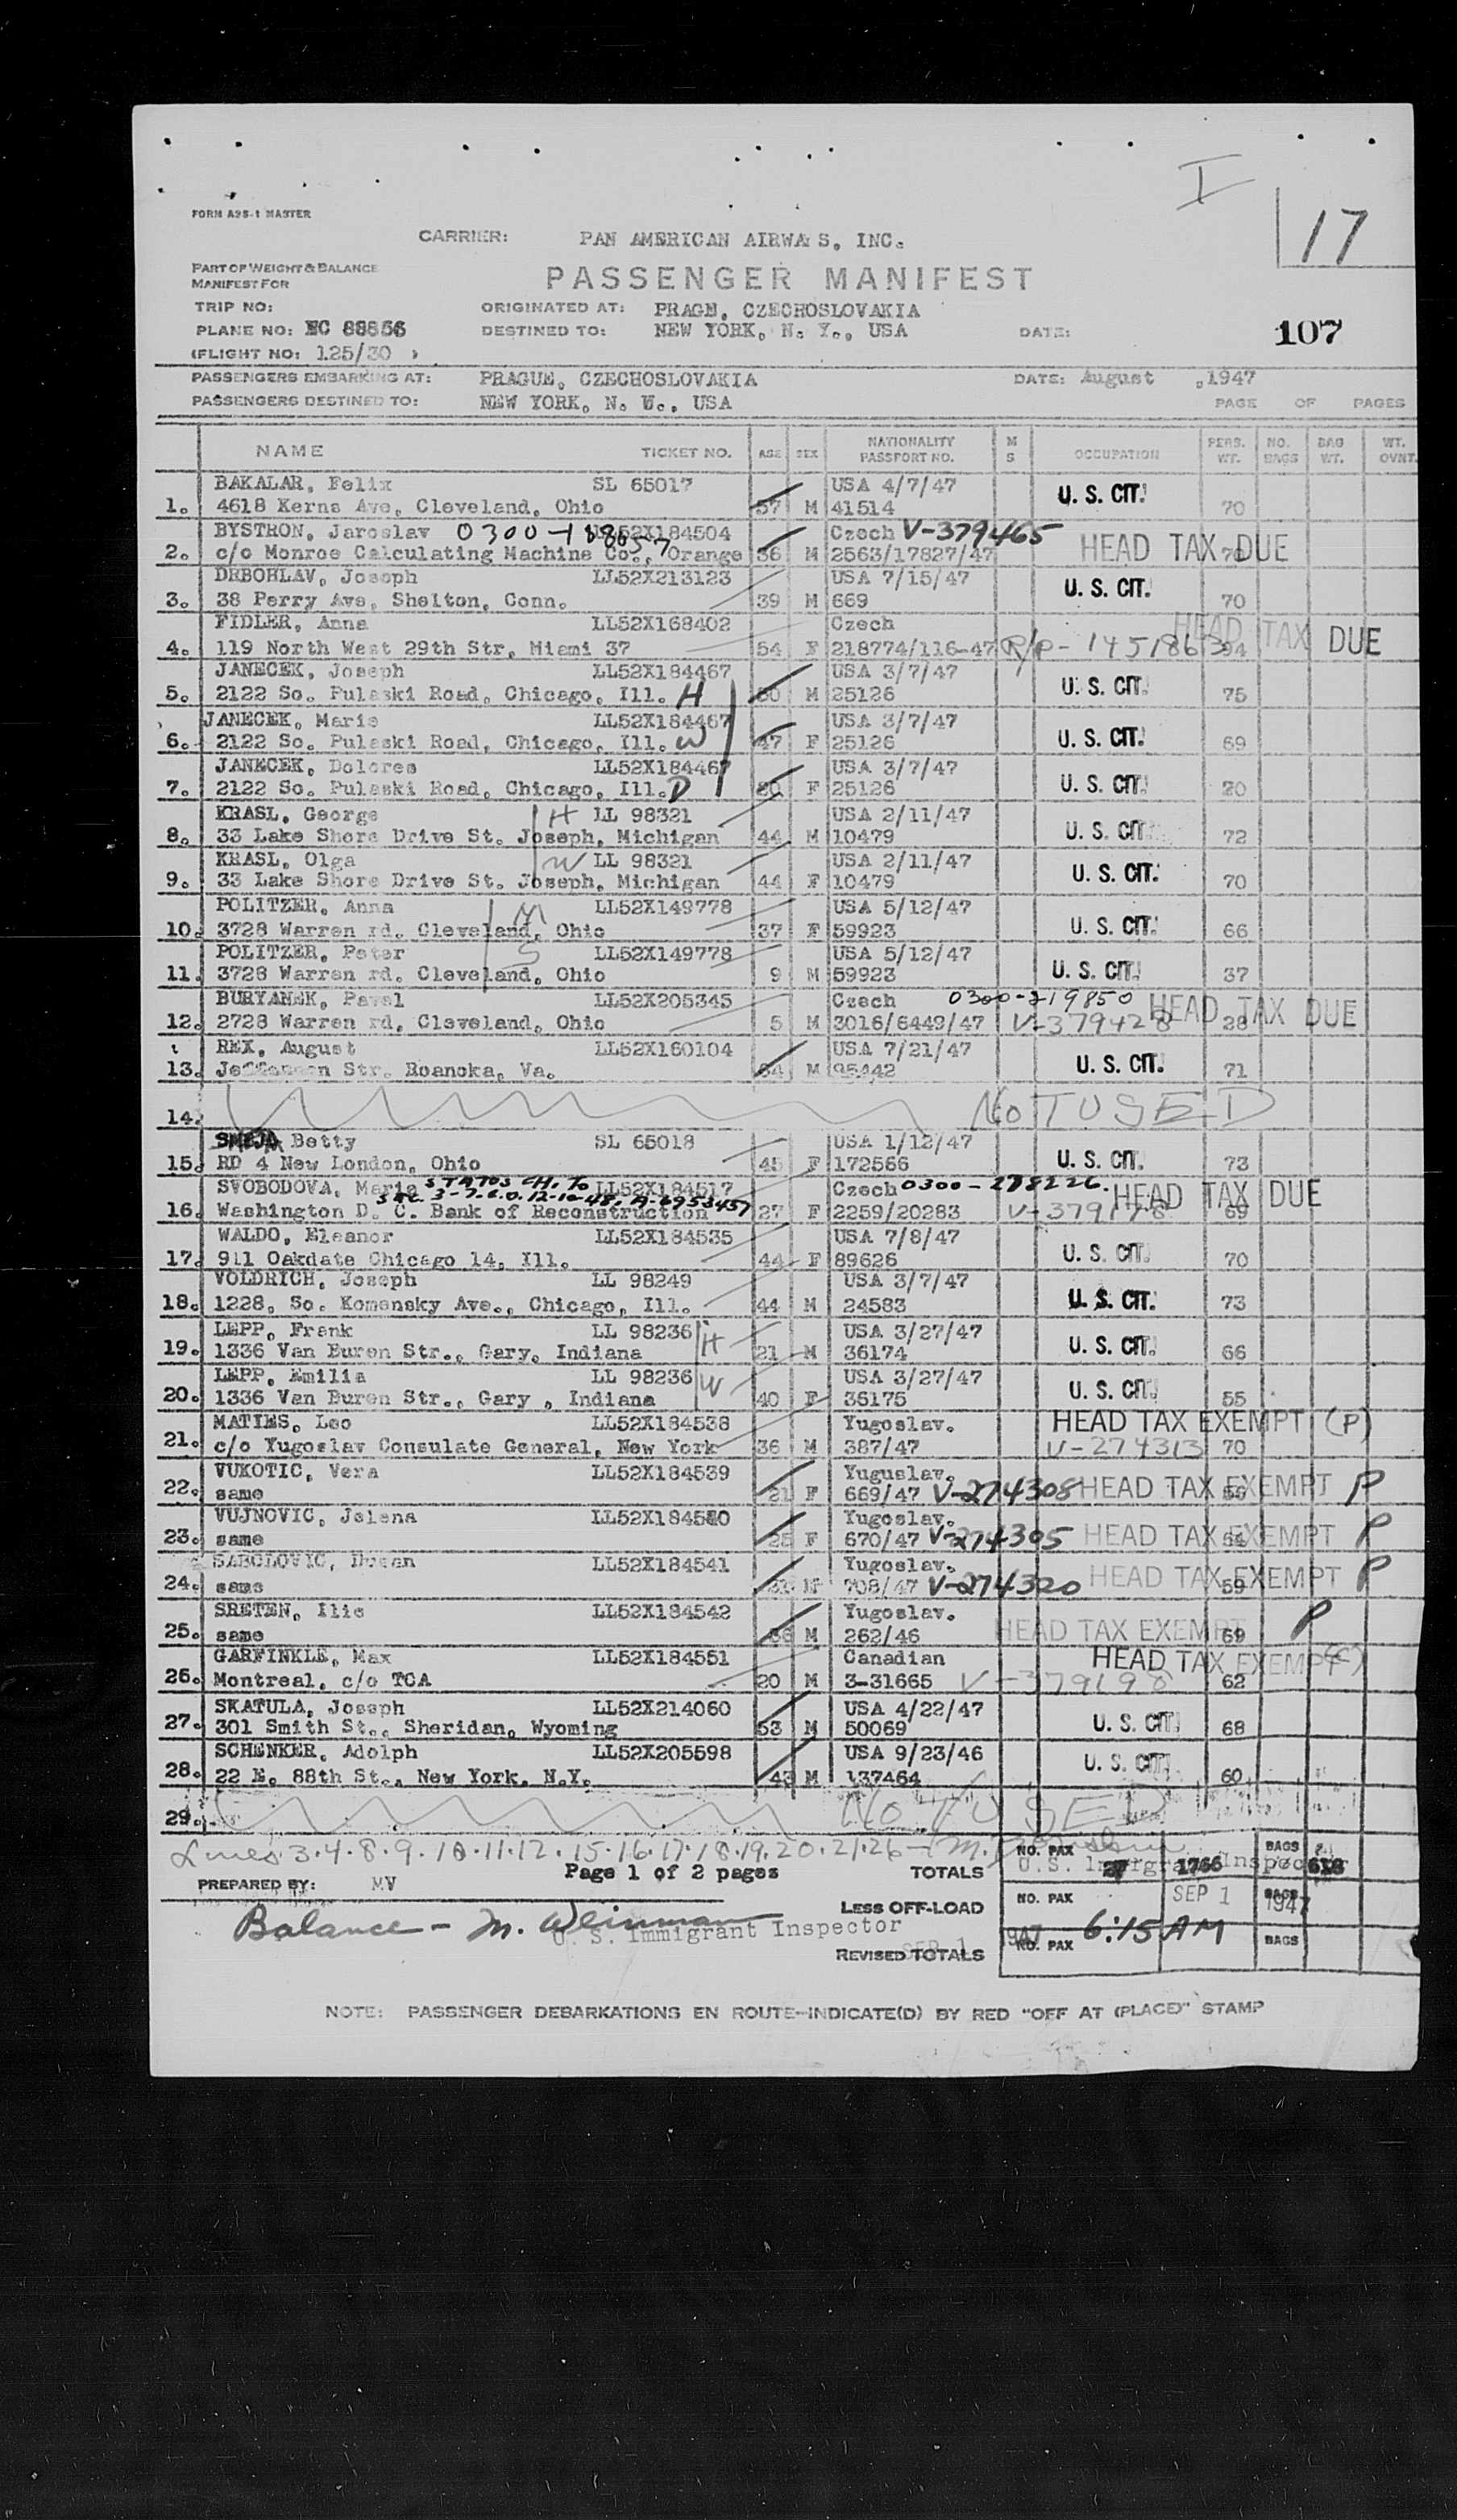 I
17
FORM A98-1 MASTER
CARRIER: PAN AMERICAN AIRWAYS, INC.
PART OF WEIGHT & BALANCE
MANIFEST FOR
PASSENGER MANIFEST
TRIP NO: ORIGINATED AT: PRAGE, CZECHOSLOVAKIA
PLANE NO: NC 88856 DESTINED TO: NEW YORK, N. Y., USA DATE: 107
(FLIGHT NO: 125/30 )
PASSENGERS EMBARKING AT: PRAGUE, CZECHOSLOVAKIA DATE: August ,1947
PASSENGERS DESTINED TO: NEW YORK, N. Y., USA PAGE OF PAGES
NAME TICKET NO. AGE SEX NATIONALITY PASSPORT NO. M S OCCUPATION PERS. WT. NO. BAGS BAG WT. WT. OVNT.
BAKALAR, Felix SL 65017 USA 4/7/47
1. 4618 Kerns Ave, Cleveland, Ohio 57 M 41514 U. S. CIT. 70
BYSTRON, Jaroslav 0300-188057 LL52X184504 Czech V-379465
2. c/o Monroe Calculating Machine Co., Orange 36 M 2563/17827/47 HEAD TAX DUE
DEBOHLAV, Joseph LL52X213123 USA 7/15/47
3. 38 Perry Ave, Shelton, Conn. 39 M 669 U. S. CIT. 70
FIDLER, Anna LL52X168402 Czech HEAD TAX DUE
4. 119 North West 29th Str, Miami 37 54 F 218774/116-47 R/P-1451863 94
JANECEK, Joseph LL52X184467 USA 3/7/47
5. 2122 So. Pulaski Road, Chicago, Ill. H 50 M 25126 U. S. CIT. 75
JANECEK, Marie LL52X184467 USA 3/7/47
6. 2122 So. Pulaski Road, Chicago, Ill. W 47 F 25126 U. S. CIT. 69
JANECEK, Dolores LL52X184467 USA 3/7/47
7. 2122 So. Pulaski Road, Chicago, Ill. D 20 F 25126 U. S. CIT.
KRASL, George H LL 98321 USA 2/11/47
8. 33 Lake Shore Drive St. Joseph, Michigan 44 M 10479 U. S. CIT. 72
KRASL, Olga W LL 98321 USA 2/11/47
9. 33 Lake Shore Drive St. Joseph, Michigan 44 F 10479 U. S. CIT. 70
POLITZER, Anna M LL52X149778 USA 5/12/47
10. 3728 Warren rd. Cleveland, Ohio 37 F 59923 U. S. CIT. 66
POLITZER, Peter S LL52X149778 USA 5/12/47
11. 3728 Warren rd. Cleveland, Ohio 9 M 59923 U. S. CIT. 37
BURYANEK, Pavel LL52X205345 Czech 0300-219850 HEAD TAX DUE
12. 2728 Warren rd, Cleveland, Ohio 5 M 3016/6449/47 V-379428 28
REX, August LL52X160104 USA 7/21/47
13. Jefferson Str. Roanoka, Va. M 95442 U. S. CIT. 71
14. NOT USED
SMEJA Betty SL 65018 USA 1/12/47
15. RD 4 New London, Ohio 45 F 172566 U. S. CIT. 73
SVOBODOVA, Marie STATUS CH. TO LL52X184517 Czech 0300-278226. HEAD TAX DUE
SEC. 3-7-C.O. 12-10-48. A-6953457
16. Washington D. C. Bank of Reconstruction 27 F 2259/20283 V-379178 69
WALDO, Eleanor LL52X184535 USA 7/8/47
17. 911 Oakdate Chicago 14, Ill. 44 F 89626 U. S. CIT. 70
VOLDRICH, Joseph LL 98249 USA 3/7/47
18. 1228, So. Komensky Ave., Chicago, Ill. 44 M 24583 U. S. CIT. 73
LEPP, Frank LL 98236 H USA 3/27/47
19. 1336 Van Buren Str., Gary, Indiana 21 M 36174 U. S. CIT. 66
LEPP, Emilia LL 98236 W USA 3/27/47
20. 1336 Van Buren Str., Gary , Indiana 40 F 36175 U. S. CIT. 55
MATIES, Leo LL52X184538 Yugoslav. HEAD TAX EXEMPT (P)
21. c/o Yugoslav Consulate General, New York 36 M 387/47 V-274313 70
VUKOTIC, Vera LL52X184539 Yuguslav.
22. same 21 F 669/47 V-274308 HEAD TAX EXEMPT P
VUJNOVIC, Jelena LL52X184540 Yugoslav.
23. same 25 F 670/47 V-274305 HEAD TAX EXEMPT P
SABOLOVIC, Dusan LL52X184541 Yugoslav.
24. same M 708/47 V-274320 HEAD TAX EXEMPT P 59
SRETEN, Ilie LL52X184542 Yugoslav. P
25. same 36 M 262/46 HEAD TAX EXEMPT 69
GARFINKLE, Max LL52X184551 Canadian HEAD TAX EXEMPT (C)
26. Montreal, c/o TCA 20 M 3-31665 V-379198 62
SKATULA, Joseph LL52X214060 USA 4/22/47
27. 301 Smith St., Sheridan, Wyoming 53 M 50069 U. S. CIT. 68
SCHENKER, Adolph LL52X205598 USA 9/23/46
28. 22 E. 88th St., New York, N.Y. 43 M 137464 U. S. CIT. 60
29. NOT USED
Lines 3.4.8.9.10.11.12.15.16.17.18.19.20.21.26 - M.
Page 1 of 2 pages TOTALS NO. PAX 27 1766 BAGS 618
U.S. Immigrant Inspector
PREPARED BY: MV
LESS OFF-LOAD NO. PAX SEP 1 1947 BAGS
Balance - M. Weinman
U. S. Immigrant Inspector
SEP 1 1947 6:15 AM
REVISED TOTALS NO. PAX BAGS
NOTE: PASSENGER DEBARKATIONS EN ROUTE-INDICATE(D) BY RED "OFF AT (PLACE)" STAMP